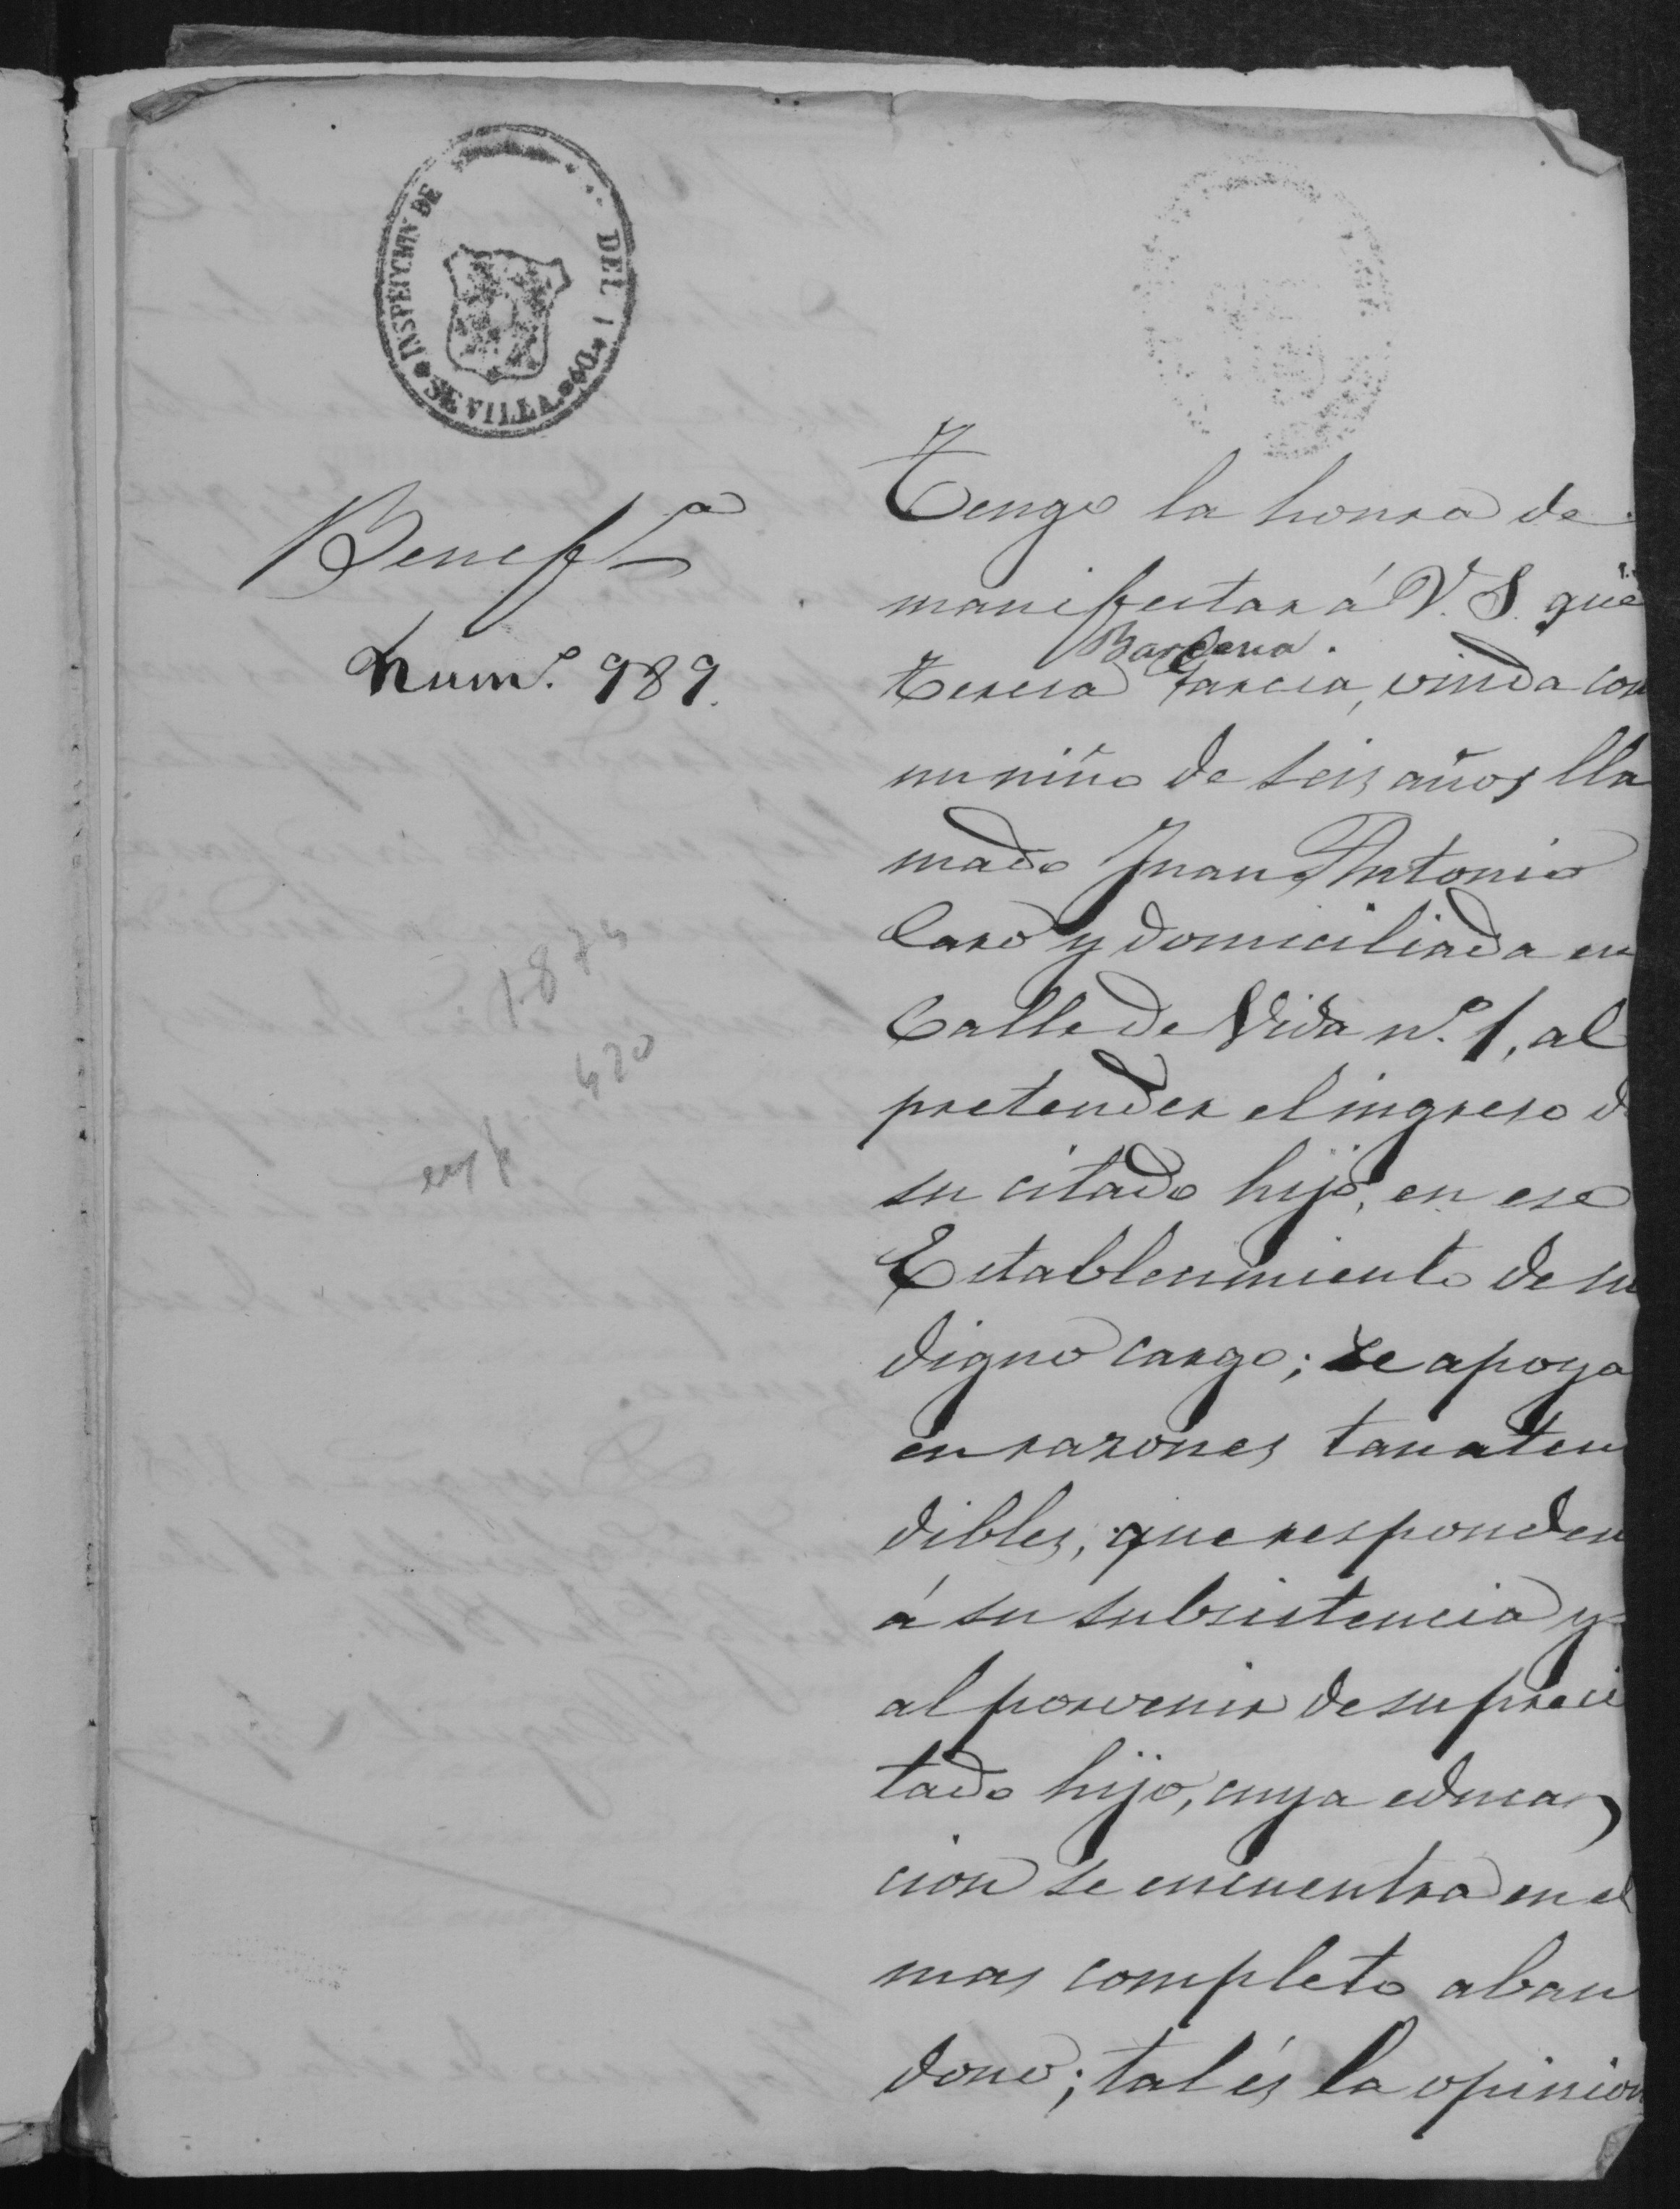 INSPECCION DE
DEL 1
SEVILLA
Benef.ª
Num.º 989.
1874
420
Tengo la honra de
manifestar á V. S. que
Barcena.
Teresa Garcia, viuda con
un niño de seis años lla
mado Juan Antonio
Caro y domiciliada en
Calle de Vida n.º 1, al
pretender el ingreso d
su citado hijo, en ese
Establecimiento de su
digno cargo; se apoya
en razones tan aten
dibles, que responden
á su subsistencia y
al porvenir de su preci
tado hijo, cuya educa
cion se encuentra en el
mas completo aban
dono; tal és la opinion